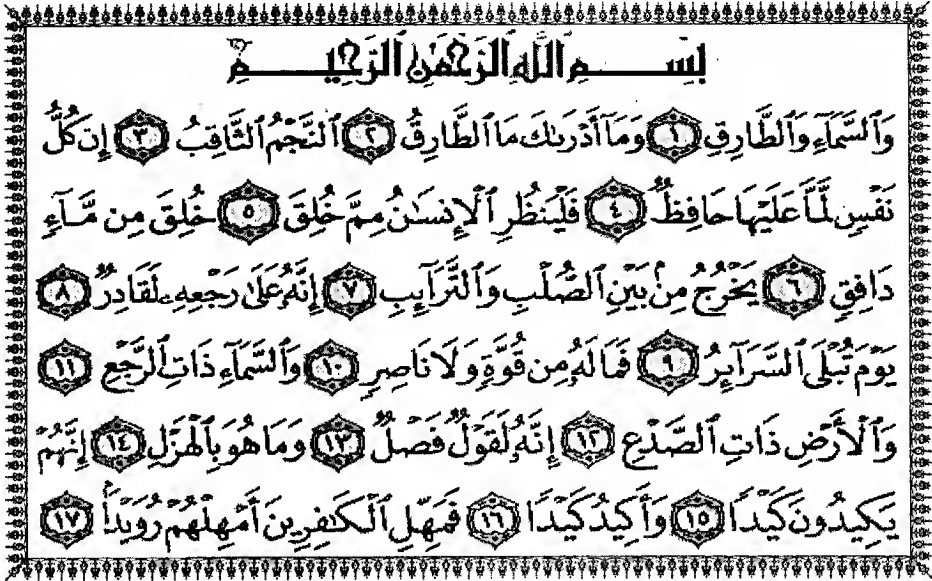 بِسْمِ ٱللَّهِ ٱلرَّحْمَٰنِ ٱلرَّحِيمِ
وَٱلسَّمَآءِ وَٱلطَّارِقِ ١ وَمَآ أَدْرَىٰكَ مَا ٱلطَّارِقُ ٢ ٱلنَّجْمُ ٱلثَّاقِبُ ٣ إِن كُلُّ
نَفْسٍ لَّمَّا عَلَيْهَا حَافِظٌ ٤ فَلْيَنظُرِ ٱلْإِنسَٰنُ مِمَّ خُلِقَ ٥ خُلِقَ مِن مَّآءٍ
دَافِقٍ ٦ يَخْرُجُ مِنۢ بَيْنِ ٱلصُّلْبِ وَٱلتَّرَآئِبِ ٧ إِنَّهُۥ عَلَىٰ رَجْعِهِۦ لَقَادِرٌ ٨
يَوْمَ تُبْلَى ٱلسَّرَآئِرُ ٩ فَمَا لَهُۥ مِن قُوَّةٍ وَلَا نَاصِرٍ ١٠ وَٱلسَّمَآءِ ذَاتِ ٱلرَّجْعِ ١١
وَٱلْأَرْضِ ذَاتِ ٱلصَّدْعِ ١٢ إِنَّهُۥ لَقَوْلٌ فَصْلٌ ١٣ وَمَا هُوَ بِٱلْهَزْلِ ١٤ إِنَّهُمْ
يَكِيدُونَ كَيْدًا ١٥ وَأَكِيدُ كَيْدًا ١٦ فَمَهِّلِ ٱلْكَٰفِرِينَ أَمْهِلْهُمْ رُوَيْدًۢا ١٧